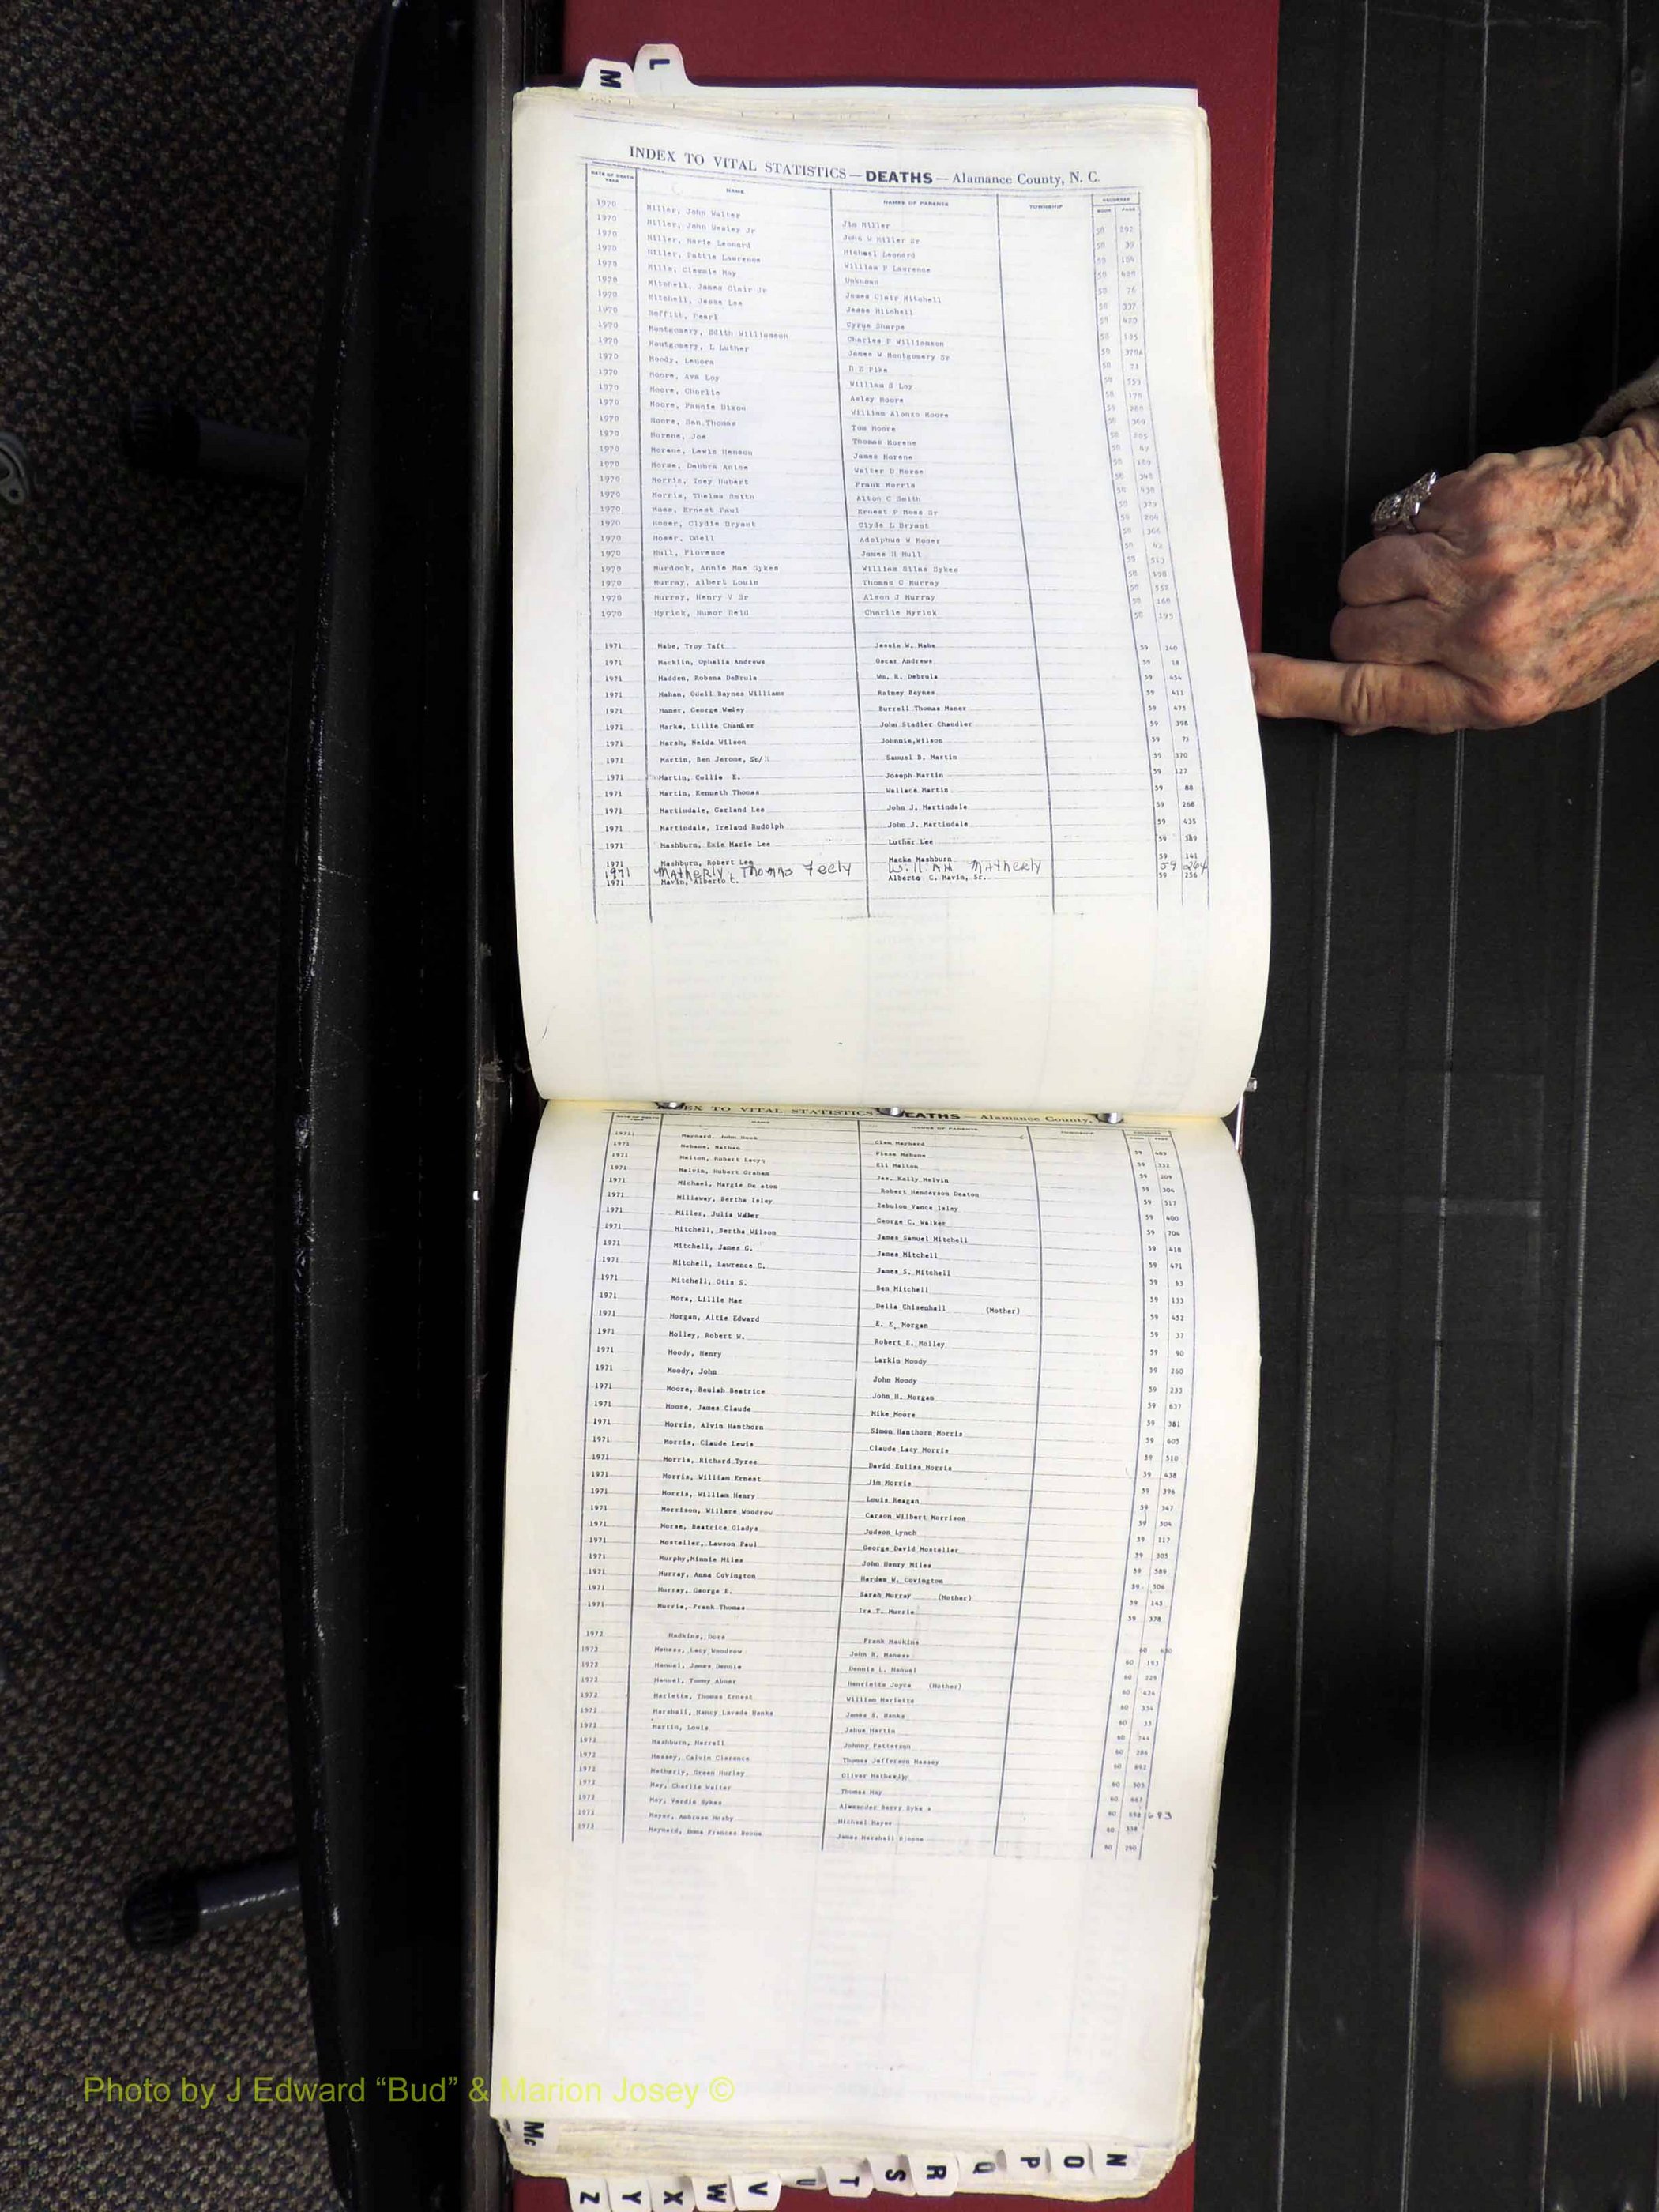 L
M
INDEX TO VITAL STATISTICS — DEATHS — Alamance County, N. C.
DATE OF DEATH YEAR NAME NAMES OF PARENTS TOWNSHIP RECORDED BOOK PAGE
1970 Miller, John Walter Jim Miller 58 292
1970 Miller, John Wesley Jr John W Miller Sr 58 39
1970 Miller, Marie Leonard Michael Leonard 58 184
1970 Miller, Pattie Lawrence William P Lawrence 58
1970 Mills, Clemmie May Unknown 58 76
1970 Mitchell, James Clair Jr James Clair Mitchell 58 337
1970 Mitchell, Jesse Lee Jesse Mitchell 59 420
1970 Moffitt, Pearl Cyrus Sharpe 58
1970 Montgomery, Edith Williamson Charles P Williamson 58
1970 Montgomery, L Luther James W Montgomery Sr 58 71
1970 Moody, Lenora D S Pike 58 553
1970 Moore, Ava Loy William S Loy 58 178
1970 Moore, Charlie Asley Moore 58
1970 Moore, Fannie Dixon William Alonzo Moore 58 369
1970 Moore, San Thomas Tom Moore 58
1970 Morene, Joe Thomas Morene 58
1970 Morene, Lewis Henson James Morene 58 189
1970 Morse, Debbra Anine Walter D Morse 58
1970 Morris, Isey Hubert Frank Morris 58
1970 Morris, Thelma Smith Alton C Smith 58 329
1970 Moss, Ernest Paul Ernest P Moss Sr 58
1970 Moser, Clydie Bryant Clyde L Bryant 58 366
1970 Moser, Odell Adolphus W Moser 58 42
1970 Mull, Florence James H Mull 59 513
1970 Murdock, Annie Mae Sykes William Silas Sykes 58 198
1970 Murray, Albert Louis Thomas C Murray 58 552
1970 Murray, Henry V Sr Alson J Murray 58 168
1970 Myrick, Numor Reid Charlie Myrick 58 195
1971 Mabe, Troy Taft Jessie W. Mabe 59 240
1971 Macklin, Ophelia Andrews Oscar Andrews 59 18
1971 Madden, Robena DeBrula Wm. R. Debrula 59 454
1971 Mahan, Odell Baynes Williams Rainey Baynes 59 411
1971 Maner, George Wesley Burrell Thomas Maner 59 475
1971 Marks, Lillie Chandler John Stadler Chandler 59 398
1971 Marsh, Neida Wilson Johnnie,Wilson 59 73
1971 Martin, Ben Jerome, Sr/ Samuel B. Martin 59 370
1971 Martin, Collie E. Joseph Martin 59 127
1971 Martin, Kenneth Thomas Wallace Martin 59 88
1971 Martindale, Garland Lee John J. Martindale 59 268
1971 Martindale, Ireland Rudolph John J. Martindale 59 435
1971 Mashburn, Exie Marie Lee Luther Lee 59 389
1971 Mashburn, Robert Lee Macke Mashburn 59 141
1971 Matherly, Thomas Feely William Matherly 59 264
1971 Mavin, Alberto C. Alberto C. Mavin, Sr. 59 256
INDEX TO VITAL STATISTICS DEATHS — Alamance County,
NAME NAMES OF PARENTS TOWNSHIP
1971 Maynard, John Hook Clem Maynard 59 489
1971 Mebane, Nathan Plese Mebane 59 332
1971 Melton, Robert Lacy Eli Melton 59 209
1971 Melvin, Hubert Graham Jas. Kelly Melvin 59 304
1971 Michael, Margie De aton Robert Henderson Deaton 59 517
1971 Millaway, Bertha Isley Zebulon Vance Isley 59 400
1971 Milles, Julia Walker George C. Walker 59 704
1971 Mitchell, Bertha Wilson James Samuel Mitchell 59 418
1971 Mitchell, James G. James Mitchell 59 471
1971 Mitchell, Lawrence C. James S. Mitchell 59 63
1971 Mitchell, Otis S. Ben Mitchell 59 133
1971 Mora, Lillie Mae Della Chisenhall (Mother) 59 452
1971 Morgan, Altie Edward E. E. Morgan 59 37
1971 Molley, Robert W. Robert E. Molley 59 90
1971 Moody, Henry Larkin Moody 59 260
1971 Moody, John John Moody 59 233
1971 Moore, Beulah Beatrice John H. Morgan 59 637
1971 Moore, James Claude Mike Moore 59 381
1971 Morris, Alvin Hanthorn Simon Hanthorn Morris 59 605
1971 Morris, Claude Lewis Claude Lacy Morris 59 510
1971 Morris, Richard Tyree David Euliss Morris 59 438
1971 Morris, William Ernest Jim Morris 59 396
1971 Morris, William Henry Louis Reagan 59 347
1971 Morrison, Willare Woodrow Carson Wilbert Morrison 59 504
1971 Morse, Beatrice Gladys Judson Lynch 59 117
1971 Mosteller, Lawson Paul George David Mosteller 59 305
1971 Murphy,Minnie Miles John Henry Miles 59 589
1971 Murray, Anna Covington Harden W. Covington 59 506
1971 Murray, George E. Sarah Murray (Mother) 59 145
1971 Murrie, Frank Thomas Ira T. Murrie 59 378
1972 Madkins, Dora Frank Madkins 60
1972 Maness, Lacy Woodrow John R. Maness 60 183
1972 Manuel, James Dennie Dennis L. Manuel 60 229
1972 Manuel, Tommy Abner Henrietta Joyce (Mother) 60 424
1972 Marlette, Thomas Ernest William Marlette 60 334
1972 Marshall, Nancy Lavada Hanks James S. Hanks 60 35
1972 Martin, Louis Jabue Martin 60
1972 Mashburn, Harrell Johnny Patterson 60
1972 Massey, Calvin Clarence Thomas Jefferson Massey 60
1972 Matherly, Green Hurley Oliver Matherly 60 503
1972 May, Charlie Walter Thomas May 60 667
1972 May, Verdie Sykes Alexander Berry Syke s 60 693
1972 Mayer, Ambrose Mosby Michael Mayer 60 338
1972 Maynard, Emma Frances Boone James Marshall Boone 60 290
Photo by J Edward “Bud” & Marion Josey ©
Mc
N
O
P
Q
R
S
T
U
V
W
X
Y
Z